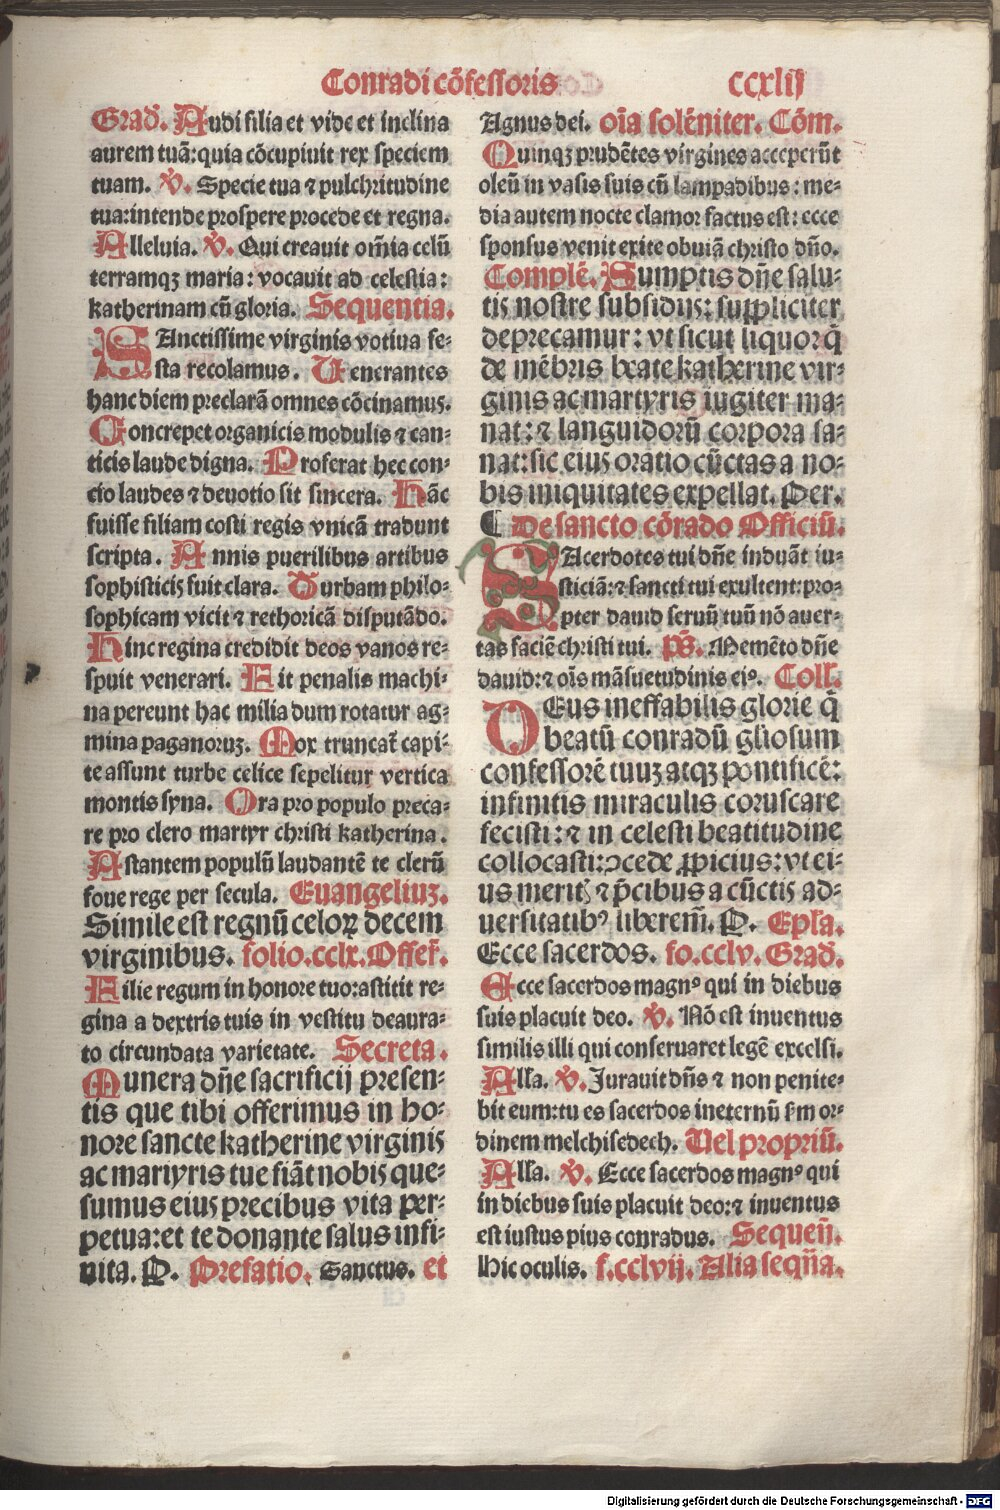 Conradi cōfessoris
ccxlij
Grad̄. Audi filia et vide et inclina
aurem tuā: quia cōcupiuit rex speciem
tuam. ℣. Specie tua ⁊ pulchritudine
tua: intende prospere procede et regna.
Alleluia. ℣. Qui creauit om̄ia celū
terramqꝫ maria: vocauit ad celestia:
katherinam cū gloria. Sequentia.
SAnctissime virginis votiua fe-
sta recolamus. Venerantes
hanc diem preclarā omnes cōcinamus.
Concrepet organicis modulis ⁊ can-
ticis laude digna. Proferat hec con-
cio laudes ⁊ deuotio sit sincera. Hāc
fuisse filiam costi regis vnicā tradunt
scripta. Annis puerilibus artibus
sophisticis fuit clara. Turbam philo-
sophicam vicit ⁊ rethoricā disputādo.
Hinc regina credidit deos vanos re-
spuit venerari. Fit penalis machi-
na pereunt hac milia dum rotatur ag-
mina paganoruꝫ. Mox truncat̄ capi-
te assunt turbe celice sepelitur vertica
montis syna. Ora pro populo preca-
re pro clero martyr christi katherina.
Astantem populū laudantē te clerū
foue rege per secula. Euangeliuꝫ.
Simile est regnū celoꝝ decem
virginibus. folio.cclx. Offer̄.
Filie regum in honore tuo: astitit re-
gina a dextris tuis in vestitu deaura-
to circundata varietate. Secreta.
Munera dn̄e sacrificij presen-
tis que tibi offerimus in ho-
nore sancte katherine virginis
ac martyris tue fiāt nobis que-
sumus eius precibus vita per-
petua: et te donante salus infi-
nita. P. Prefatio. Sanctus. et
Agnus dei. oīa solēniter. Cōm.
Quinqꝫ prudētes virgines acceperūt
oleū in vasis suis cū lampadibus: me-
dia autem nocte clamor factus est: ecce
sponsus venit exite obuiā christo dn̄o.
Complē. Sumptis dn̄e salu-
tis nostre subsidijs: suppliciter
deprecamur: vt sicut liquor q̄
de mēbris beate katherine vir-
ginis ac martyris iugiter ma-
nat: ⁊ languidorū corpora sa-
nat: sic eius oratio cūctas a no-
bis iniquitates expellat. Per.
¶ De sancto cōrado Officiū.
SAcerdotes tui dn̄e induāt iu-
sticiā: ⁊ sancti tui exultent: pro-
pter dauid seruū tuū nō auer-
tas faciē christi tui. ps̄. Memēto dn̄e
dauid: ⁊ oīs māsuetudinis eiꝰ. Coll.
DEus ineffabilis glorie q̄
beatū conradū gl̄iosum
confessorē tuuꝫ atqꝫ pontificē:
infinitis miraculis coruscare
fecisti: ⁊ in celesti beatitudine
collocasti: ↄcede ꝓpicius: vt ei-
us meritis ⁊ p̄cibus a cūctis ad-
uersitatibꝰ liberem̄. P. Epl̄a.
Ecce sacerdos. fo.cclv. Grad̄.
Ecce sacerdos magnꝰ qui in diebus
suis placuit deo. ℣. Nō est inuentus
similis illi qui conseruaret legē excelsi.
All̄a. ℣. Jurauit dn̄s ⁊ non penite-
bit eum: tu es sacerdos ineternū s̄m or-
dinem melchisedech. Uel propriū.
All̄a. ℣. Ecce sacerdos magnꝰ qui
in diebus suis placuit deo: ⁊ inuentus
est iustus pius conradus. Sequen̄.
Hic oculis. f.cclvij. Alia seqn̄a.
Digitalisierung gefördert durch die Deutsche Forschungsgemeinschaft - DFG